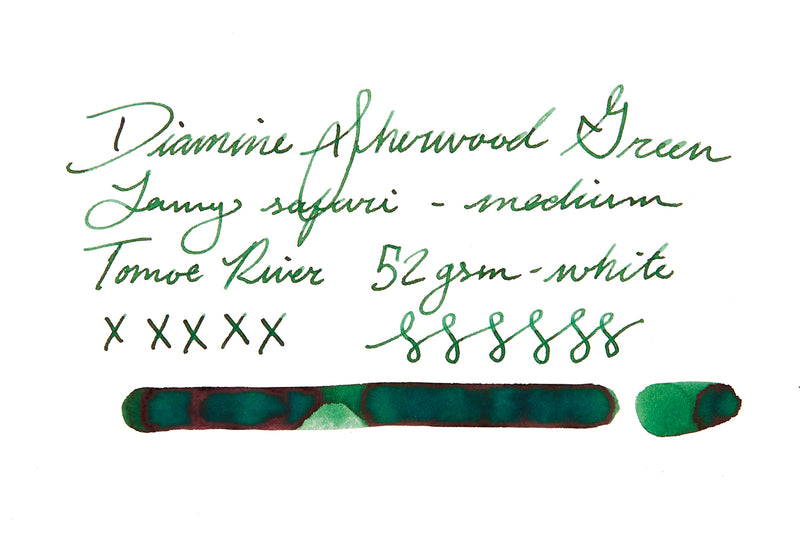 Diamine Sherwood Green
Lamy safari - medium
Tomoe River 52gsm - white
x x x x x